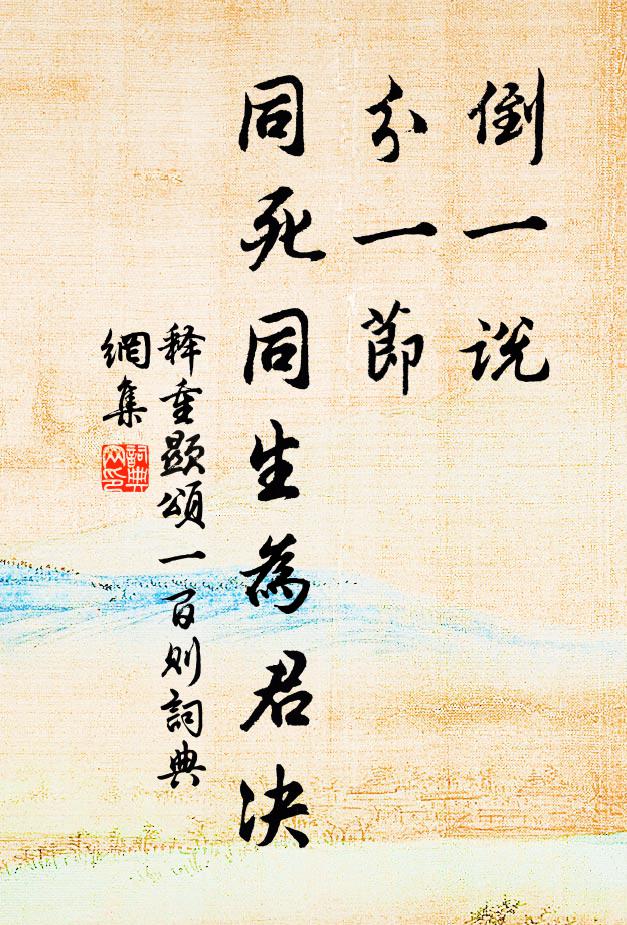 倒一说
分一節
同死同生為君决
释重顯頌一百则詞典
網集
詞典
网印